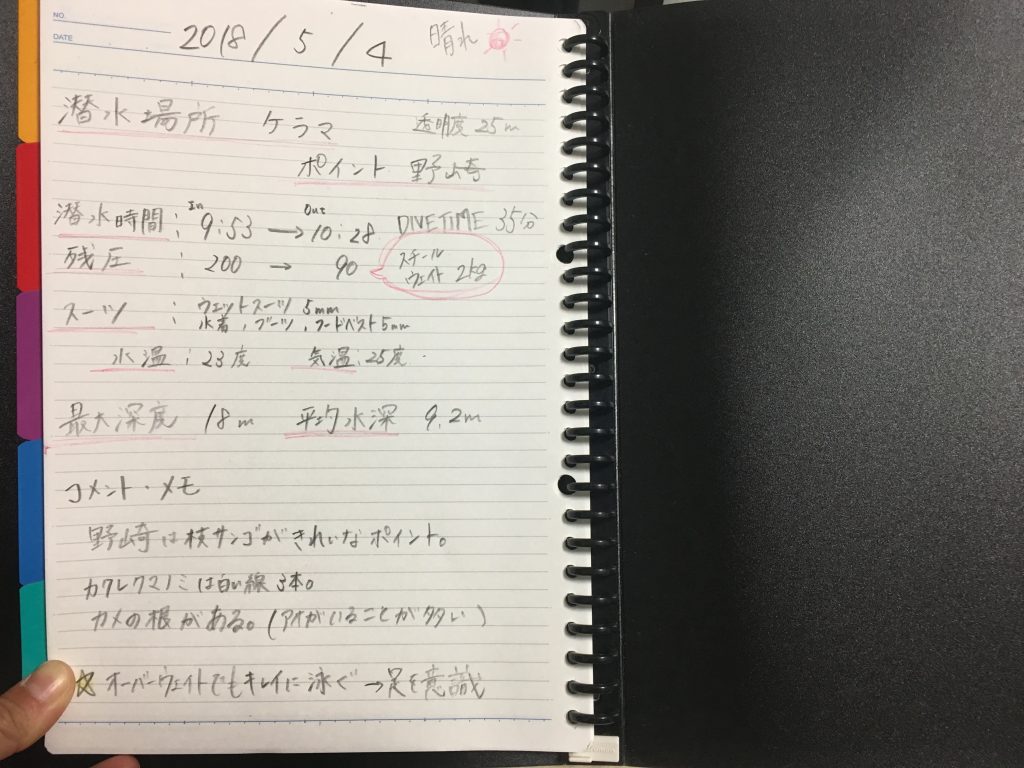 NO.
DATE
2018/5/4 晴れ
潜水場所 ケラマ 透明度 25m
ポイント 野崎
潜水時間: In 9:53 → Out 10:28 DIVETIME 35分
残圧 : 200 → 90 スチールウェイト 2kg
スーツ : ウェットスーツ 5mm
水着, ブーツ, フードベスト5mm
水温:23度 気温:25度
最大深度 18m 平均水深 9.2m
コメント・メモ
野崎は枝サンゴがきれいなポイント。
カクレクマノミは白い線3本。
カメの根がある。(アオがいることが多い)
☆オーバーウェイトでもキレイに泳ぐ→足を意識